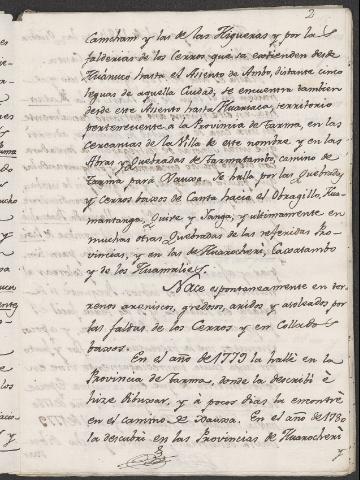 2
Camcham y las de las Higueras y por la
falderias de los Cerros que se extienden desde
Huánuco hasta el Asiento de Ambo, distante cinco
leguas de aquella Ciudad, se encuentra tambien
desde este Asiento hasta Huariaca, territorio
perteneciente a la Provincia de Tarma, en las
Cercanias de la Villa de este nombre y en las
Abras y Quebradas de Tarmatambo, camino de
Tarma para Xauxa. Se halla por las Quebradas,
y Cerros baxos de Canta hacia el Obragillo, Hua-
mantanga, Quive y Yanga, y ultimamente en
muchas otras Quebradas de las referidas Pro-
vincias, y en las de Huarocheri, Caxatambo
y de los Huamalies.
Nace espontaneamente en ter-
renos areniscos, gredosos, aridos y asoleados por
las faldas de los Cerros y en Collados
baxos.
En el año de 1779 la hallé en la
Provincia de Tarma, donde la describí è
hize dibuxar, y à pocos dias la encontrè
en el camino de Xauxa. En el año de 1780
la descubri en las Provincias de Huarocheri
y